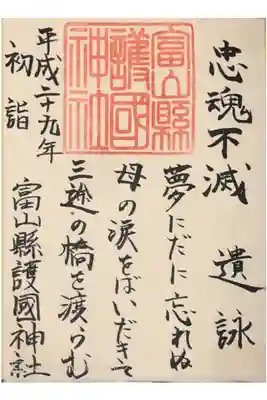 忠魂不滅 遺詠
夢にだに忘れぬ
母の涙をばいだきて
三途の橋を渡らむ
富山縣護國神社
平成二十九年
初詣
富山縣護國神社